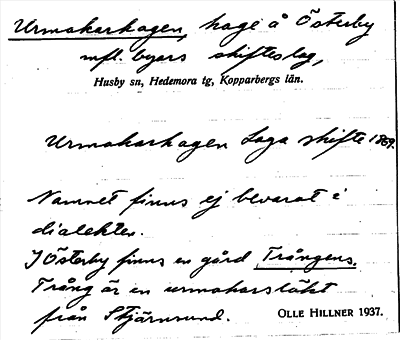 Urmakarhagen, hage å Österby
mfl. byars skifteslag,
Husby sn, Hedemora tg, Kopparbergs län.
Urmakarhagen Laga skifte 1869.
Namnet finns ej bevarat i
dialekten.
I Österby finns en gård Trångens.
Trång är en urmakarsläkt
från Stjärnsund.
OLLE HILLNER 1937.